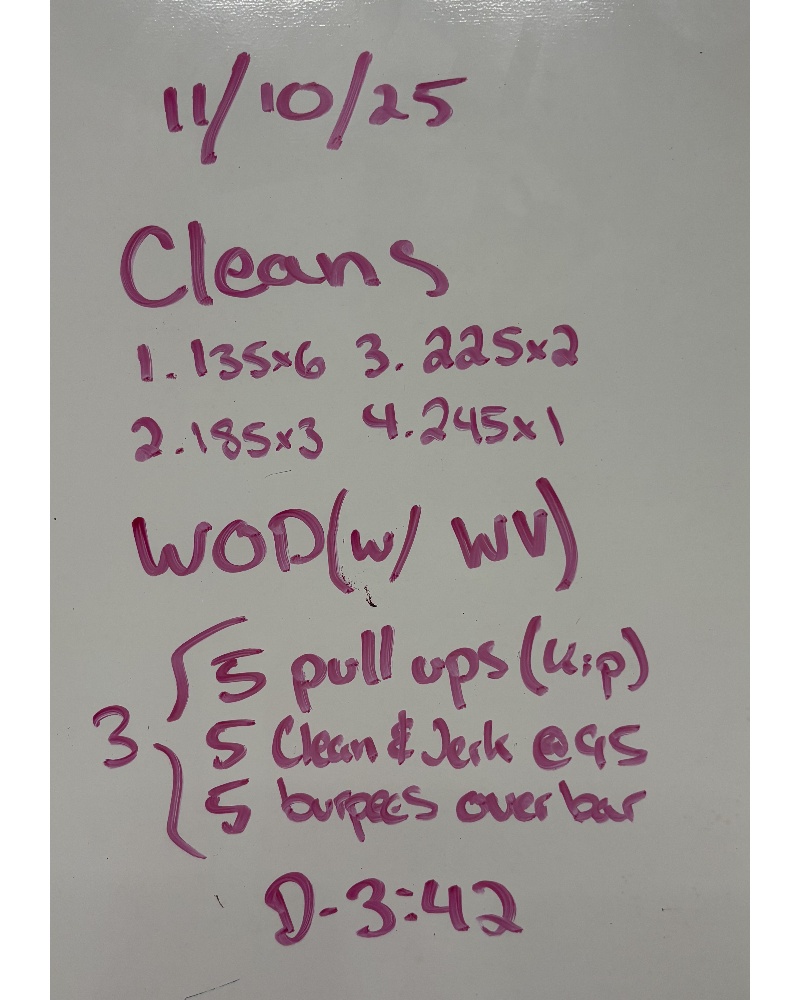 11/10/25
Cleans
1. 135x6 3. 225x2
2. 185x3 4. 245x1
WOD(w/ WV)
5 pull ups (kip)
3 5 Clean & Jerk @95
5 burpees over bar
D-3:42